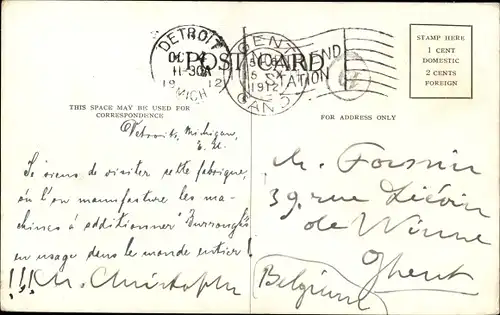 DETROIT
OC 4
11-30A
1912
MICH
GENT
5
1912
GAND
POST CARD
STATION
STAMP HERE
1 CENT
DOMESTIC
2 CENTS
FOREIGN
THIS SPACE MAY BE USED FOR
CORRESPONDENCE
FOR ADDRESS ONLY
Detroit, Michigan,
E. U.
Je viens de visiter cette fabrique,
où l'on manufacture les ma-
chines à additionner "Burroughs"
en usage dans le monde entier!
!!! M. Christophe
M.
39, rue Liévin
de Winne
Ghent
Belgium